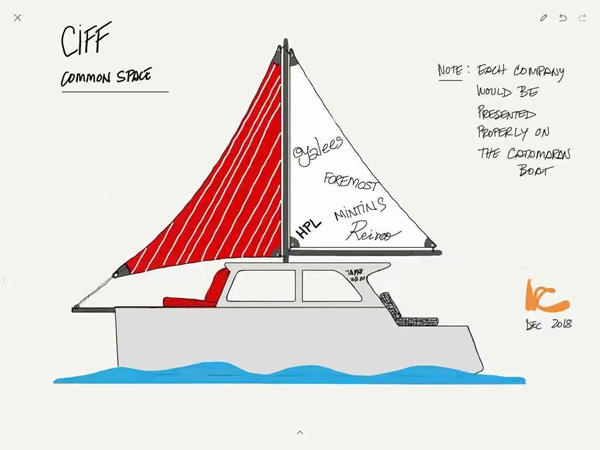 CIFF
COMMON SPACE
NOTE: EACH COMPANY
WOULD BE
PRESENTED
PROPERLY ON
THE CATOMARAN
BOAT
FOREMOST
MINTINS
HPL
DEC 2018